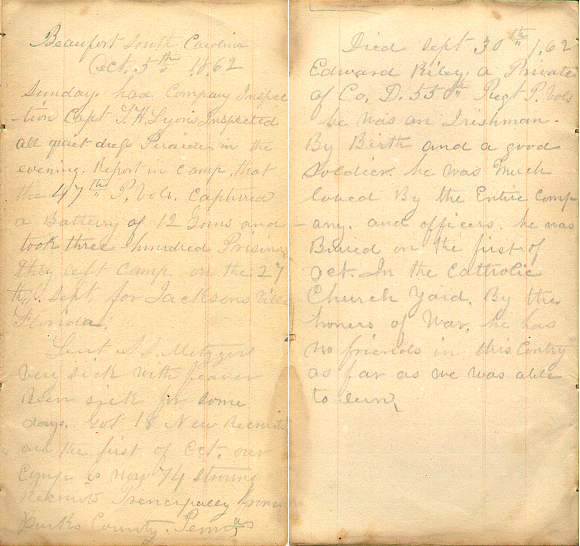 Beaufort South Carolina
Oct, 5th 1862
Sunday had Company Inspec
-tion Capt T. H. Lyons Inspected
all quiet dress Peraide in the
evening. Report in Camp that
the 47th P. Vols. Captured
a Battery of 12 Guns and
took three Hhundred Prisiners
they left Camp on the 27
th, Sept. for Jacksonsville
Florida.
Leut S. S. Metzger
very sick with feaver
Been sick for some
days. Got 18 New Recruits
on the first of Oct. our
Comp is now 74 Strong
Rekruts Principally from
Burks County. Penns
Died Sept 30th 1862
Edward Riley. a Private
of Co. D. 55th Regt P. Vols
he was an Irishman.
By Birth and a good
Soldier. he was Much
loaved By the Entire Comp
-any. and officers. he was
Buried on the first of
Oct. In the Catholic
Church Yaid. By the
honers of War, he has
no friends in this Contry
as far as we was able
to lern,